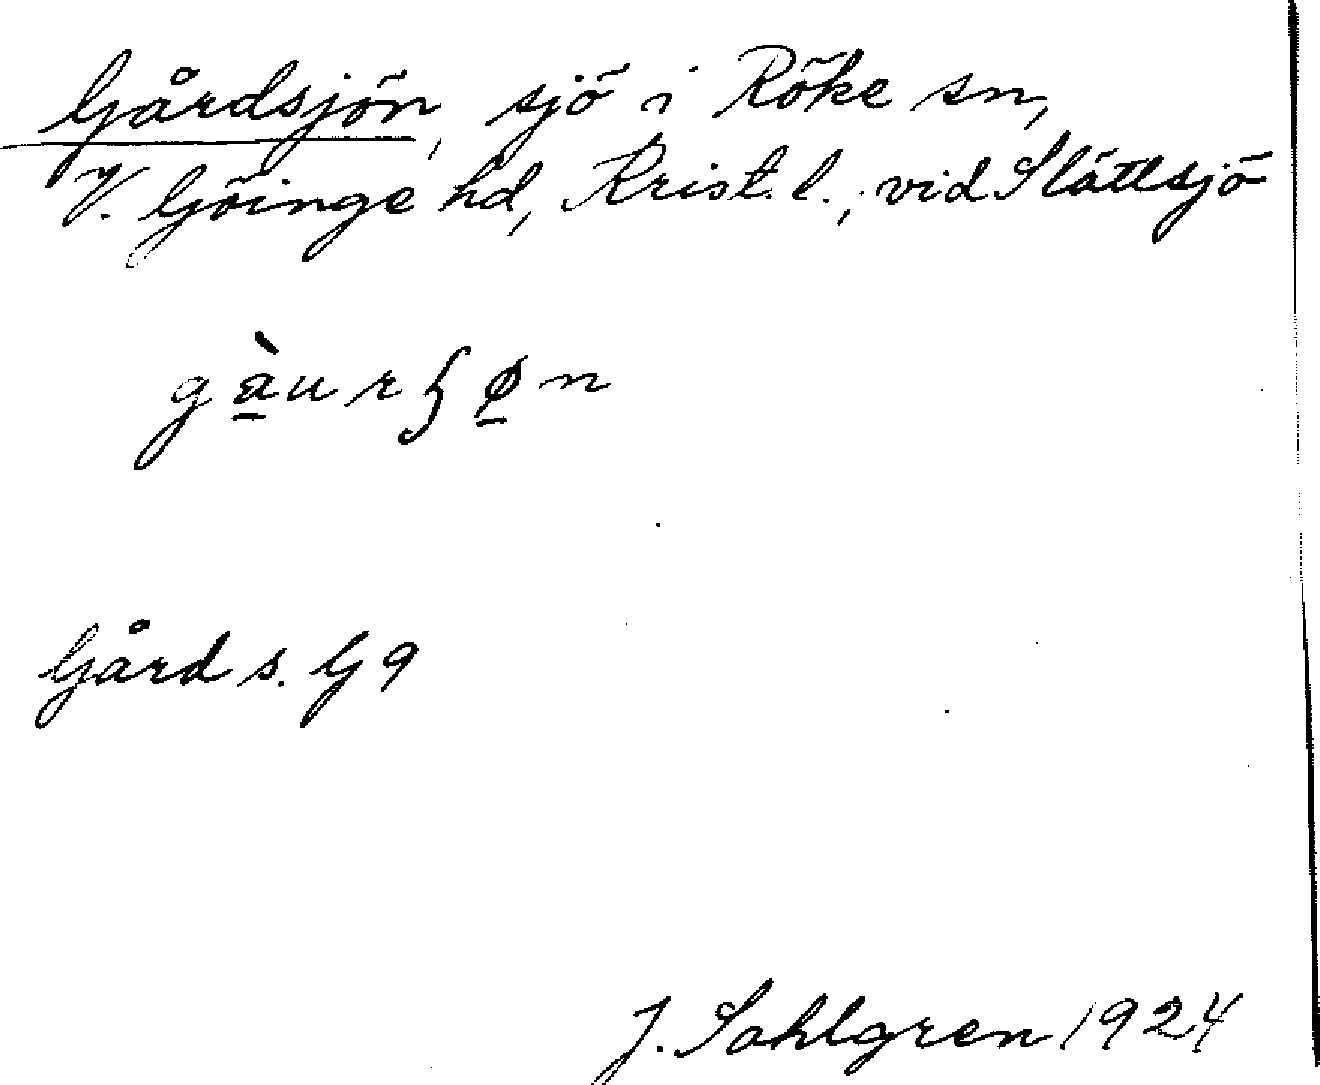 Gårdsjön, sjö i Röke sn,
V. Göinge hd, Krist. l., vid Slättsjö
gàu̱rʃø̱n
Gård s. G 9
J. Sahlgren 1924